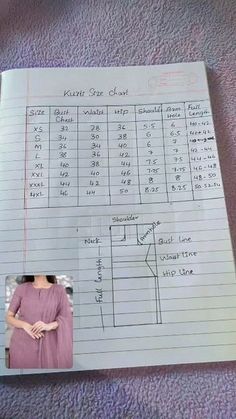 Kurti Size Chart
Size Bust Chest Waist Hip Shoulder Arm Hole Full Length
XS 32 28 36 5.5 6 40-42
S 34 30 38 6 6.5 40-42
M 36 34 40 6 7
L 38 36 42 7 7 42-44
XL 40 38 44 7.5 7.5 44-46
XXL 42 40 46 7.75 7.75 46-48
XXXL 44 42 48 8 8 48-50
4XL 46 44 50 8.25 8.25 50-52-54
Shoulder
Neck
Armhole
Bust line
Waist line
Hip line
Full Length